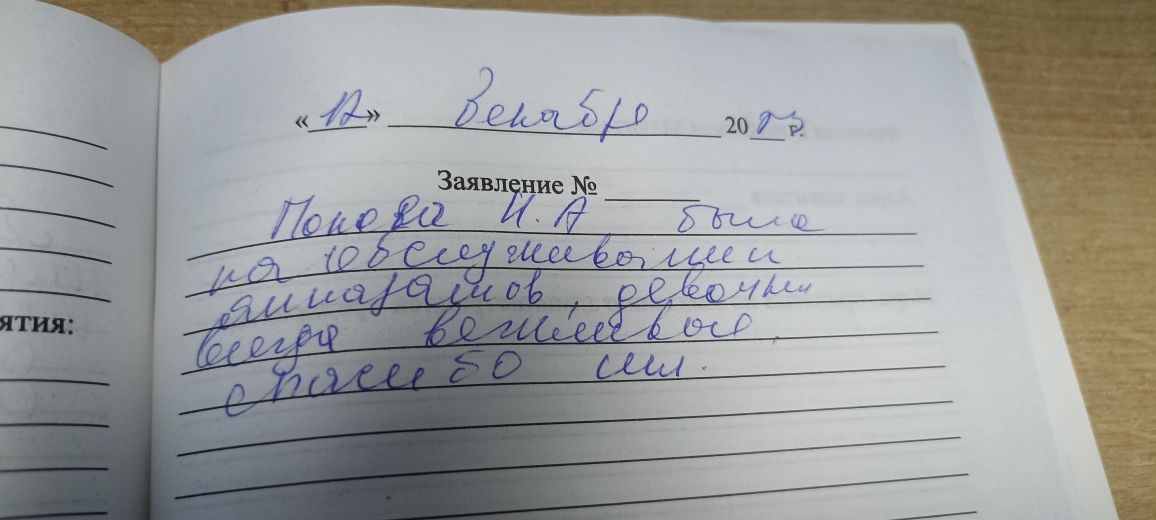 ятия:
«12» декабря 2023 г.
Заявление №
Попова И. А была
на обслуживании
аппаратов, девочки
всегда вежливые,
спасибо им.